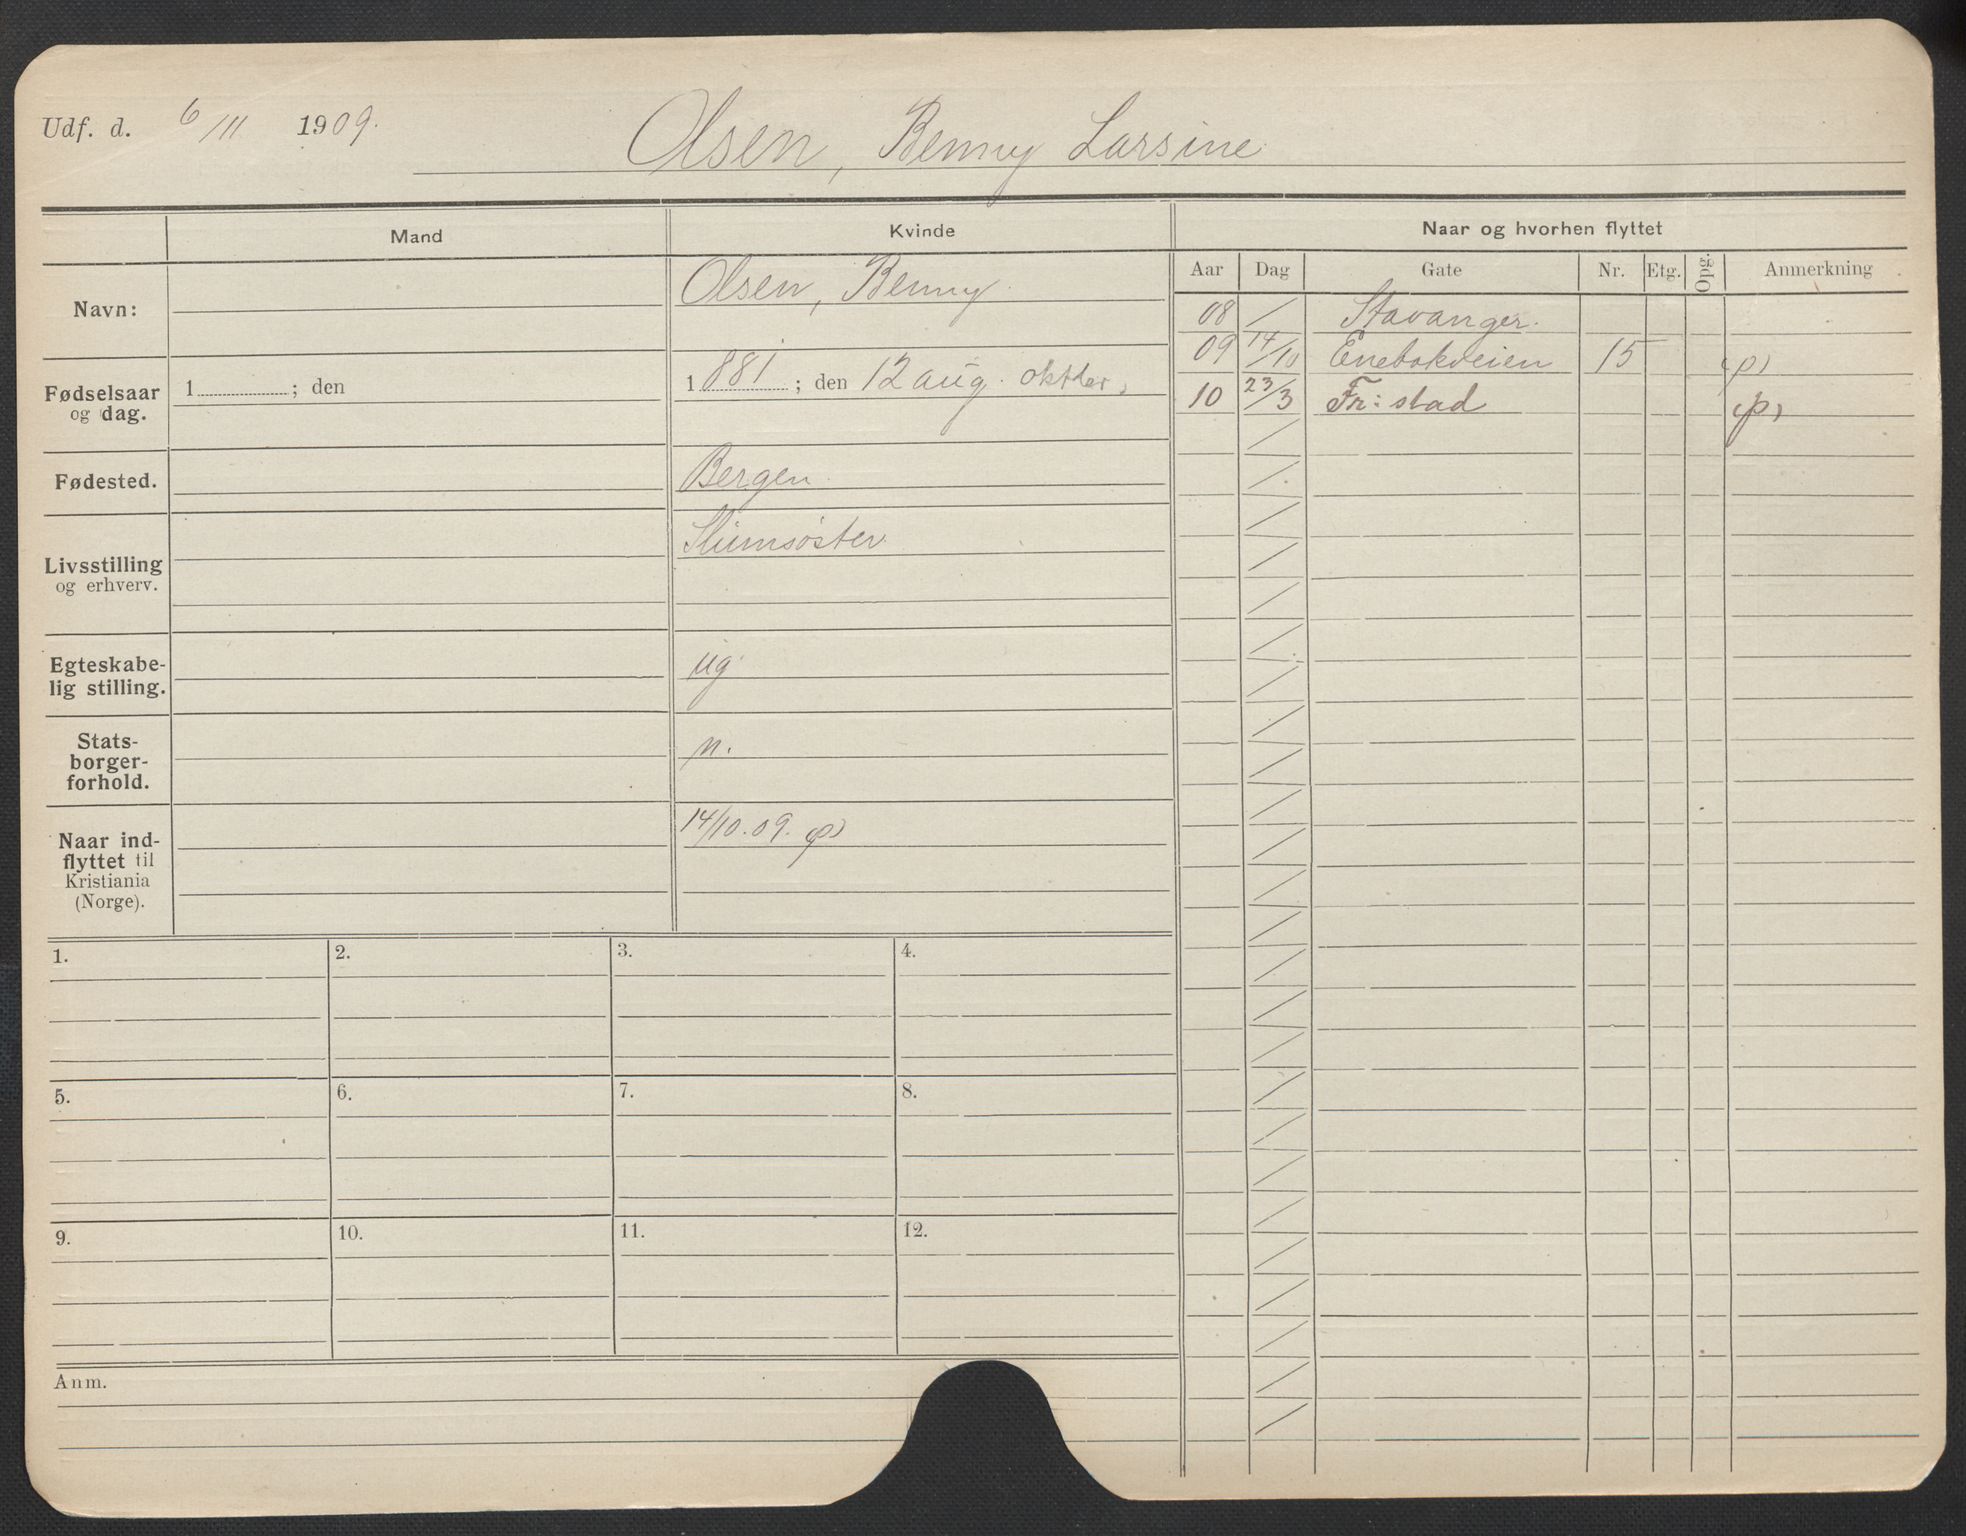 Udf. d. 6/11 1909.
Olsen, Benny Larsine
Mand
Kvinde
Naar og hvorhen flyttet
Aar Dag Gate Nr. Etg. Opg. Anmerkning
Navn:
Olsen, Benny.
08 / Stavanger.
09 14/10 Enebakveien 15 (p)
10 23/3 Fr: stad (p)
Fødselsaar
og dag.
1 ; den
1 881 ; den 12 aug. oktbr.
Fødested.
Bergen.
Livsstilling
og erhverv.
Slumsøster.
Egteskabe-
lig stilling.
ug.
Stats-
borger-
forhold.
n.
Naar ind-
flyttet til
Kristiania
(Norge).
14/10.09. (p)
1. 2. 3. 4.
5. 6. 7. 8.
9. 10. 11. 12.
Anm.